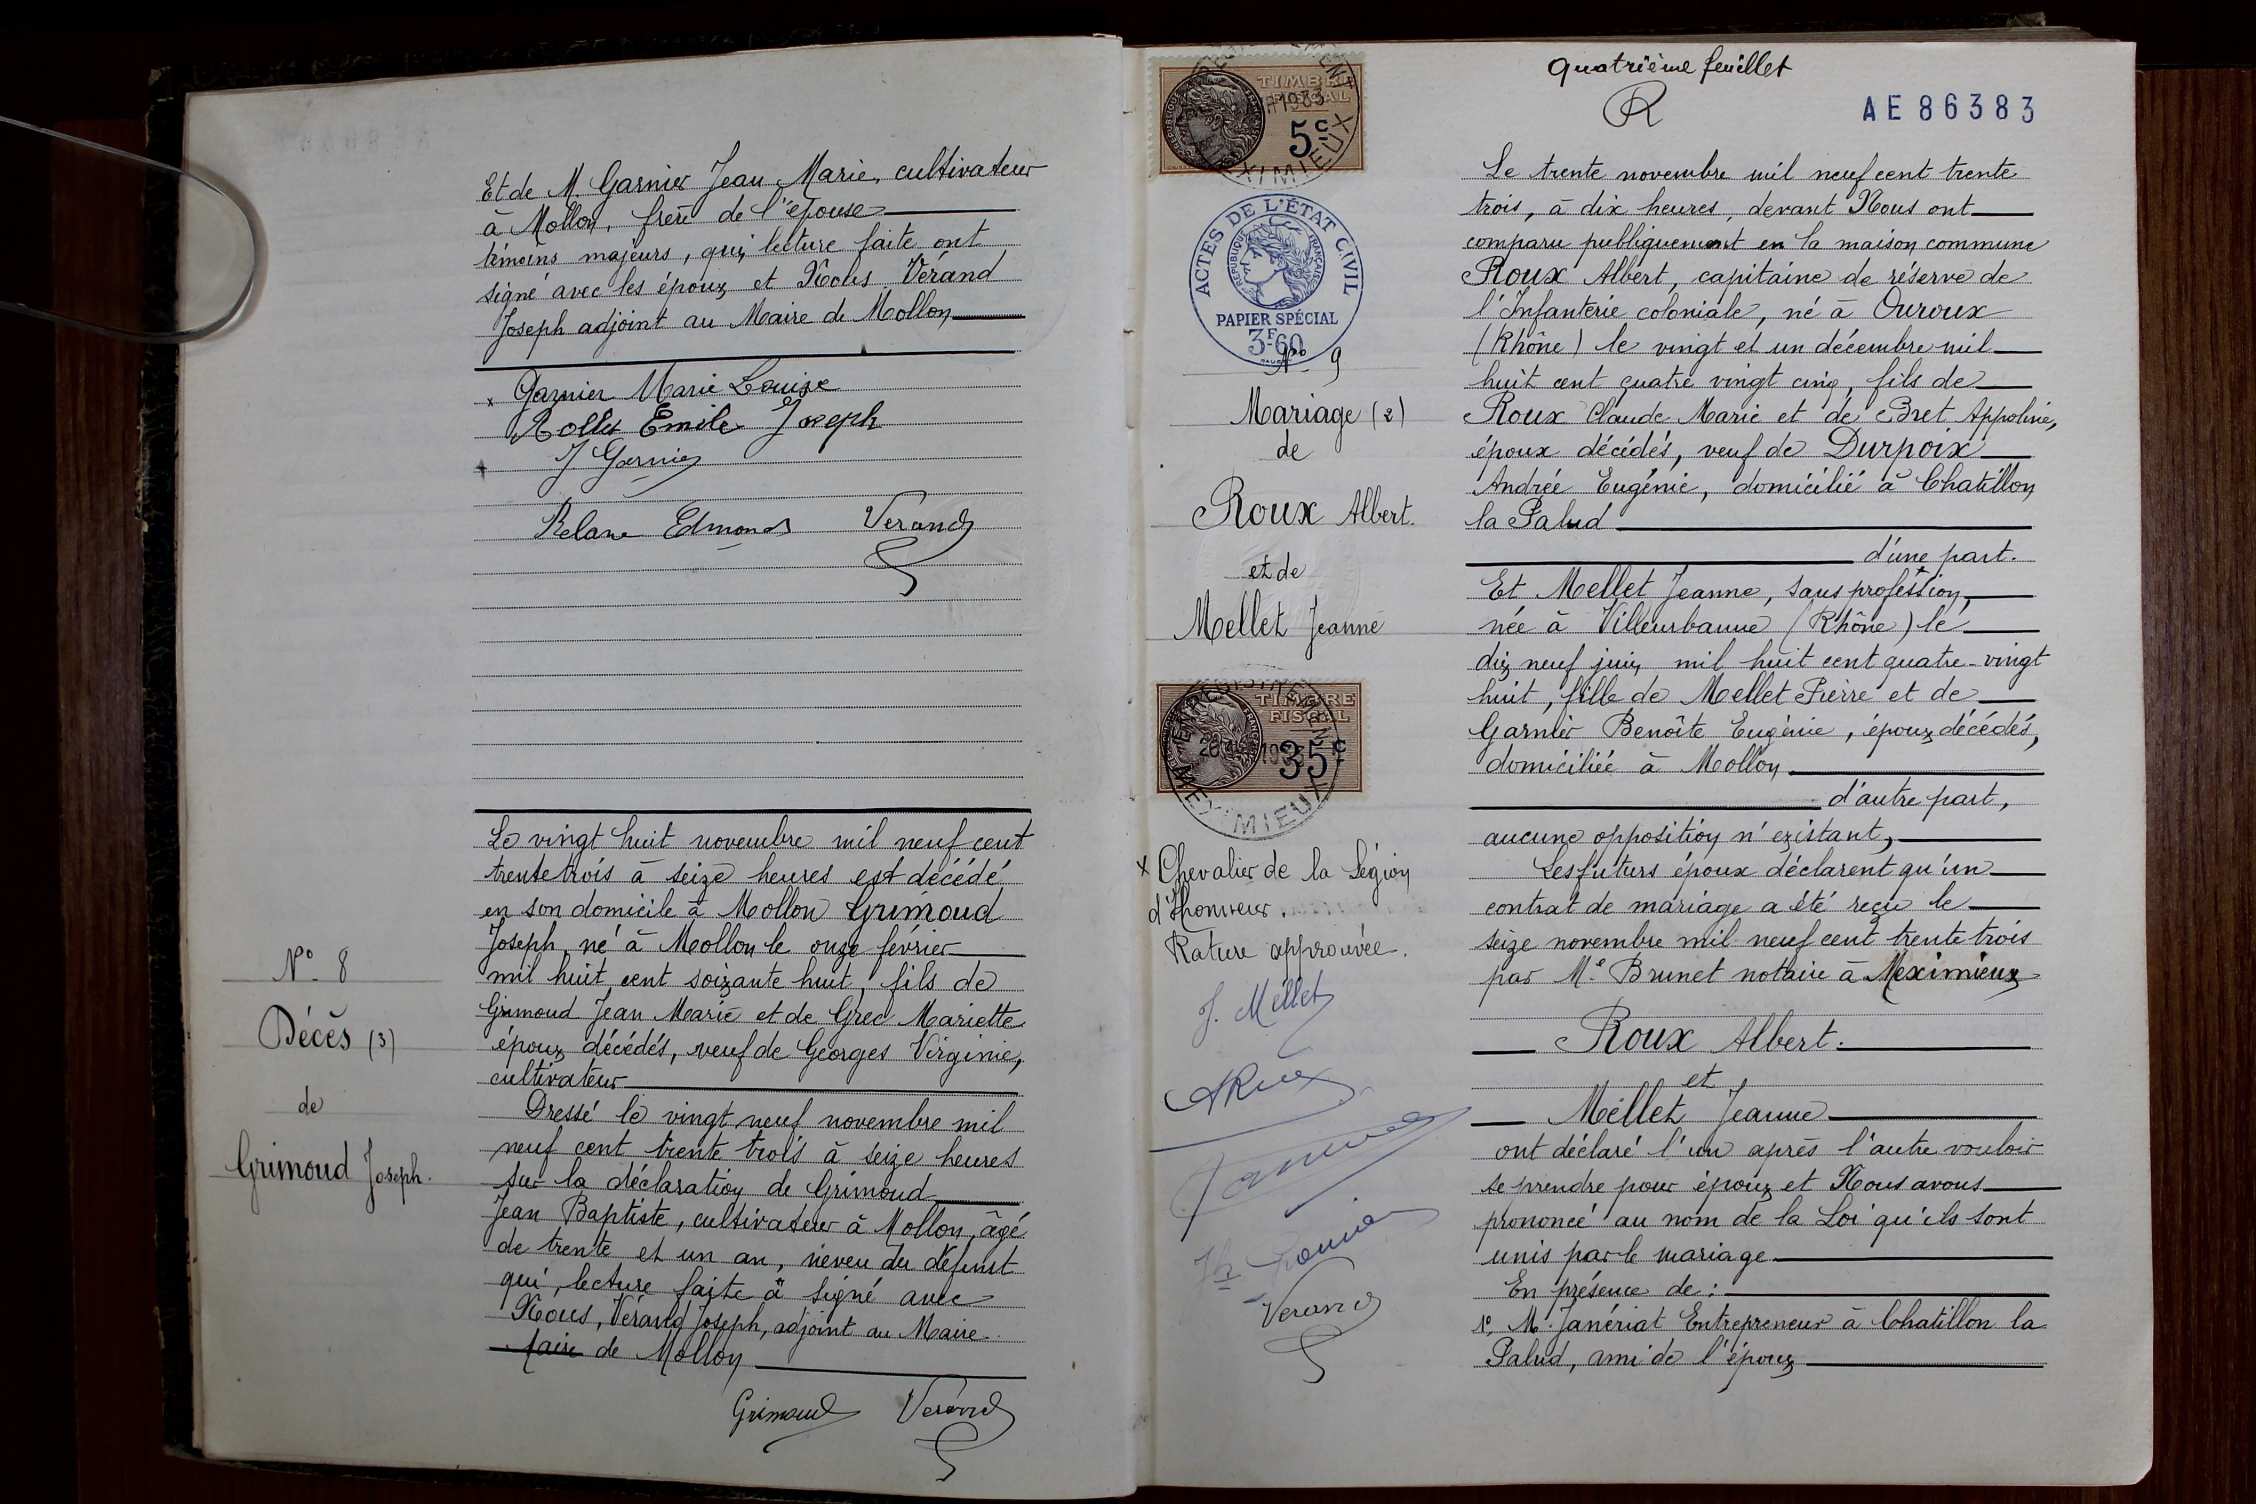 Et de M. Garnier Jean Marie, cultivateur
à Mollon, frère de l'épouse
témoins majeurs, qui, lecture faite ont
signé avec les époux et Nous Vérand
Joseph adjoint au Maire de Mollon
x Garnier Marie Louise
Rollet Emile Joseph
J Garnier
Edmond Verand
Le vingt huit novembre mil neuf cent
trente trois à seize heures est décédé
en son domicile à Mollon Grimoud
Joseph, né à Mollon le onze février
mil huit cent soixante huit, fils de
Grimoud Jean Marie et de Grec Mariette
époux décédés, veuf de Georges Virginie,
cultivateur
Dressé le vingt neuf novembre mil
neuf cent trente trois à seize heures
sur la déclaration de Grimoud
Jean Baptiste, cultivateur à Mollon, âgé
de trente et un an, neveu du défunt
qui, lecture faite a signé avec
Nous, Vérand Joseph, adjoint au Maire
faire de Mollon
Grimoud Verand
N° 8
Décès (3)
de
Grimoud Joseph.
TIMBRE
FISCAL
5c
1933
MEXIMIEUX
ACTES DE L'ÉTAT CIVIL
RÉPUBLIQUE FRANÇAISE
PAPIER SPÉCIAL
3F60
N° 9
Mariage (2)
de
Roux Albert.
et de
Mellet Jeanne
ENREGISTREMENT
TIMBRE
FISCAL
35c
MEXIMIEUX
x Chevalier de la Légion
d'Honneur.
Rature approuvée.
J. Mellet
ARoux
Verand
quatrième feuillet
R
AE86383
Le trente novembre mil neuf cent trente
trois, à dix heures, devant Nous ont
comparu publiquement en la maison commune
Roux Albert, capitaine de réserve de
l'Infanterie coloniale, né à Ouroux
(Rhône) le vingt et un décembre mil
huit cent quatre vingt cinq, fils de
Roux Claude Marie et de Bret Appolinie,
époux décédés, veuf de Durpoix
Andrée Eugénie, domicilié à Chatillon
la Palud
d'une part.
Et Mellet Jeanne, sans profession,
née à Villeurbanne (Rhône) le
dix neuf juin mil huit cent quatre-vingt
huit, fille de Mellet Pierre et de
Garnier Benoîte Eugénie, époux décédés,
domiciliée à Mollon
d'autre part,
aucune opposition n'existant,
Les futurs époux déclarent qu'un
contrat de mariage a été reçu le
seize novembre mil neuf cent trente trois
par Me Brunet notaire à Meximieux
Roux Albert.
et
Mellet Jeanne
ont déclaré l'un après l'autre vouloir
se prendre pour époux et Nous avons
prononcé au nom de la Loi qu'ils sont
unis par le mariage
En présence de :
1°, M. Janériat Entrepreneur à Chatillon la
Palud, ami de l'époux